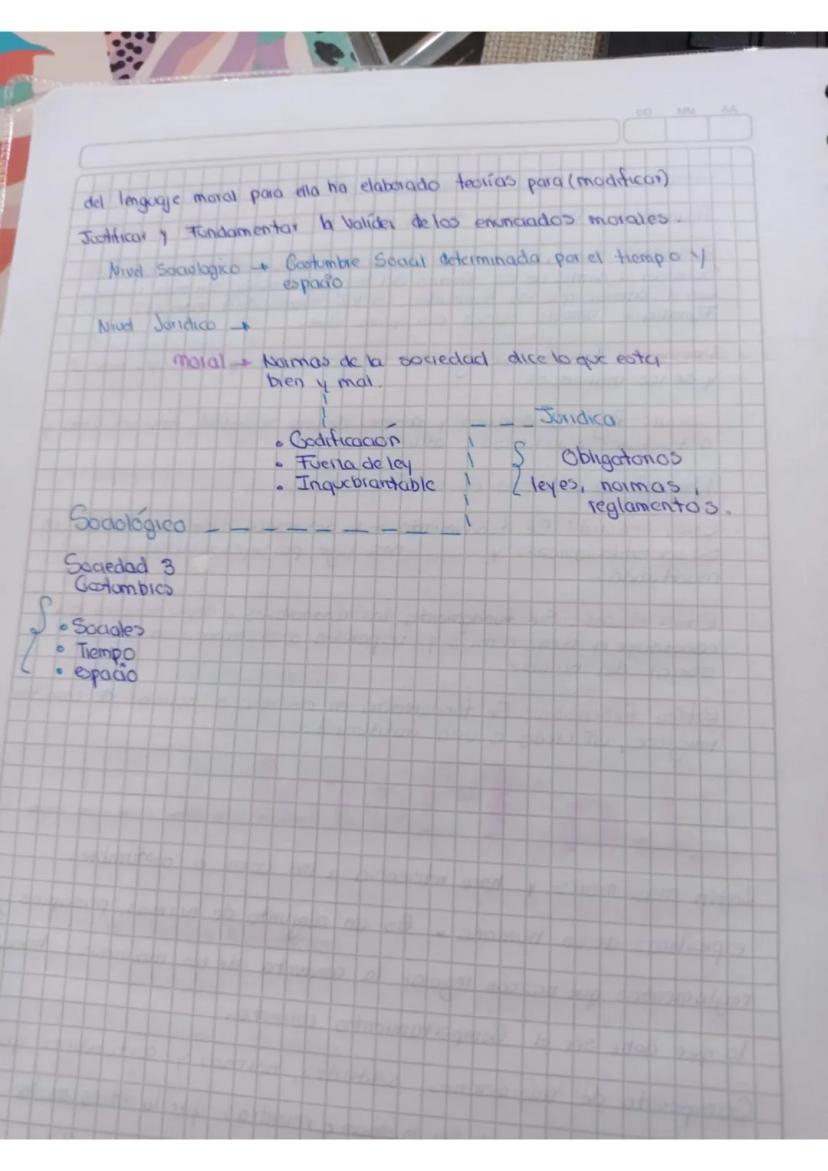 DD MM AA
del lenguaje moral para ella ha elaborado teorías para (modificar)
Justificar y Fundamentar la Validez de los enunciados morales.
Nivel Sociologico → Costumbre Social determinada por el tiempo y
espacio
Nivel Jurídico →
moral → Normas de la sociedad dice lo que esta
bien y mal.
Jurídica
• Codificación
• Fuerza de ley
• Inquebrantable
Obligatorios
leyes, normas,
reglamentos.
Sociológico
Sociedad 3
Costumbres
• Sociales
• Tiempo
• espacio